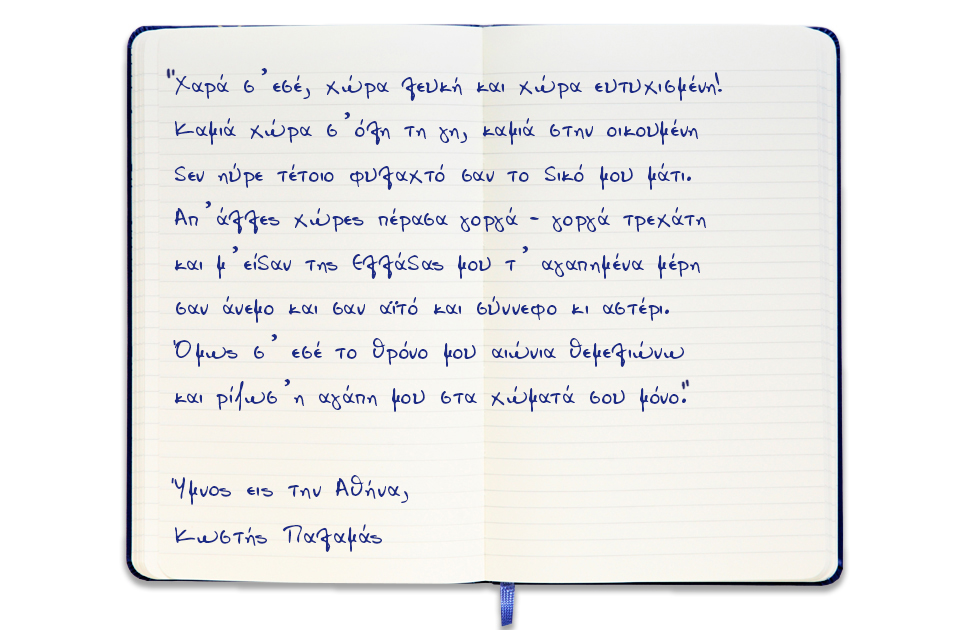 "Χαρά σ'εσέ, χώρα λευκή και χώρα ευτυχισμένη!
Καμιά χώρα σ'όλη τη γη, καμιά στην οικουμένη
δεν ηύρε τέτοιο φυλαχτό σαν το δικό μου μάτι.
Απ'άλλες χώρες πέρασα γοργά - γοργά τρεχάτη
και μ'είδαν της Ελλάδας μου τ' αγαπημένα μέρη
σαν άνεμο και σαν αϊτό και σύννεφο κι αστέρι.
Όμως σ' εσέ το θρόνο μου αιώνια θεμελιώνω
και ρίζωσ'η αγάπη μου στα χώματά σου μόνο."
Ύμνος εις την Αθήνα,
Κωστής Παλαμάς